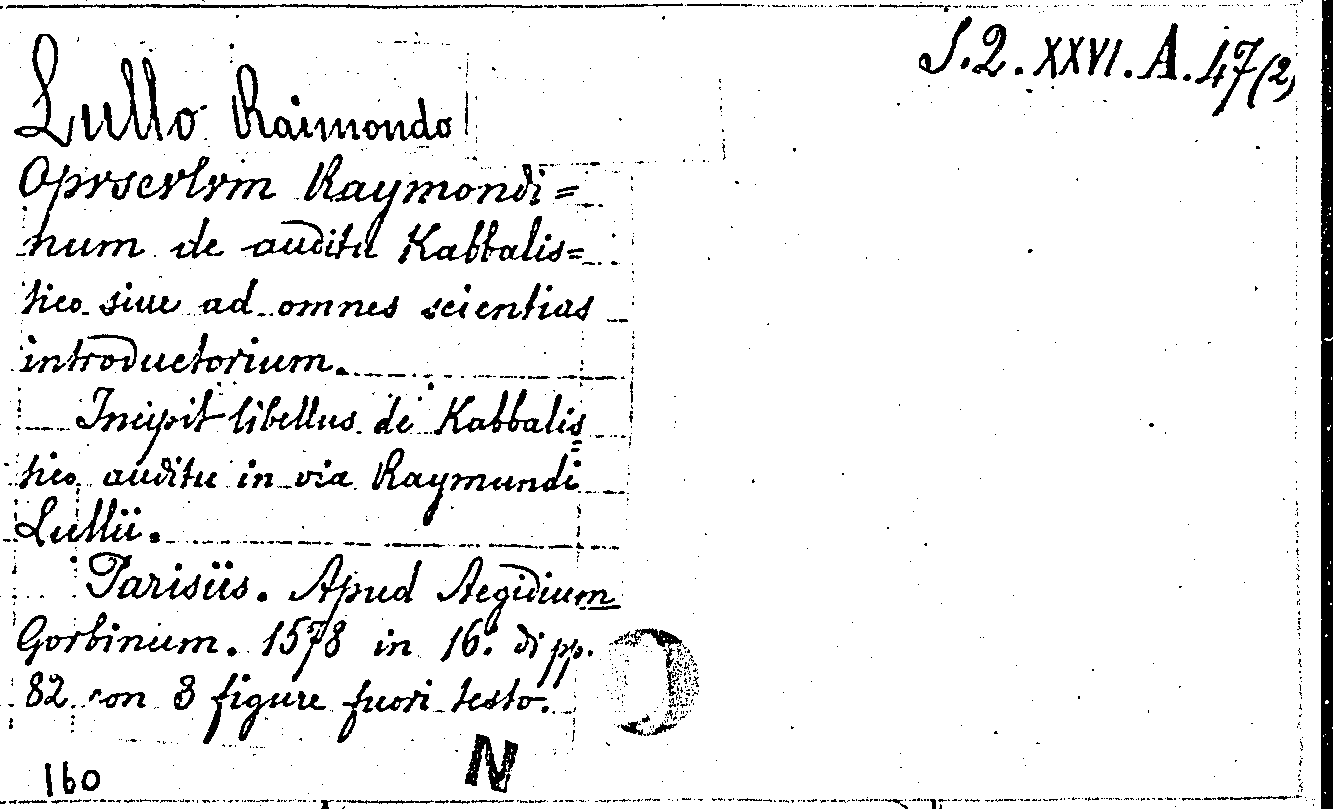 S.2. XXVI. A. 47(2)
Lullo Raimondo
Opvscvlvm Raymondi=
num de auditu Kabbalis=
tico siue ad omnes scientias
introductorium.
Incipit libellus de Kabbalis=
tico auditu in via Raymundi
Lullii.
Parisiis. Apud Aegidium
Gorbinum. 1578 in 16.° di pp.
82 con 3 figure fuori testo.
N
160